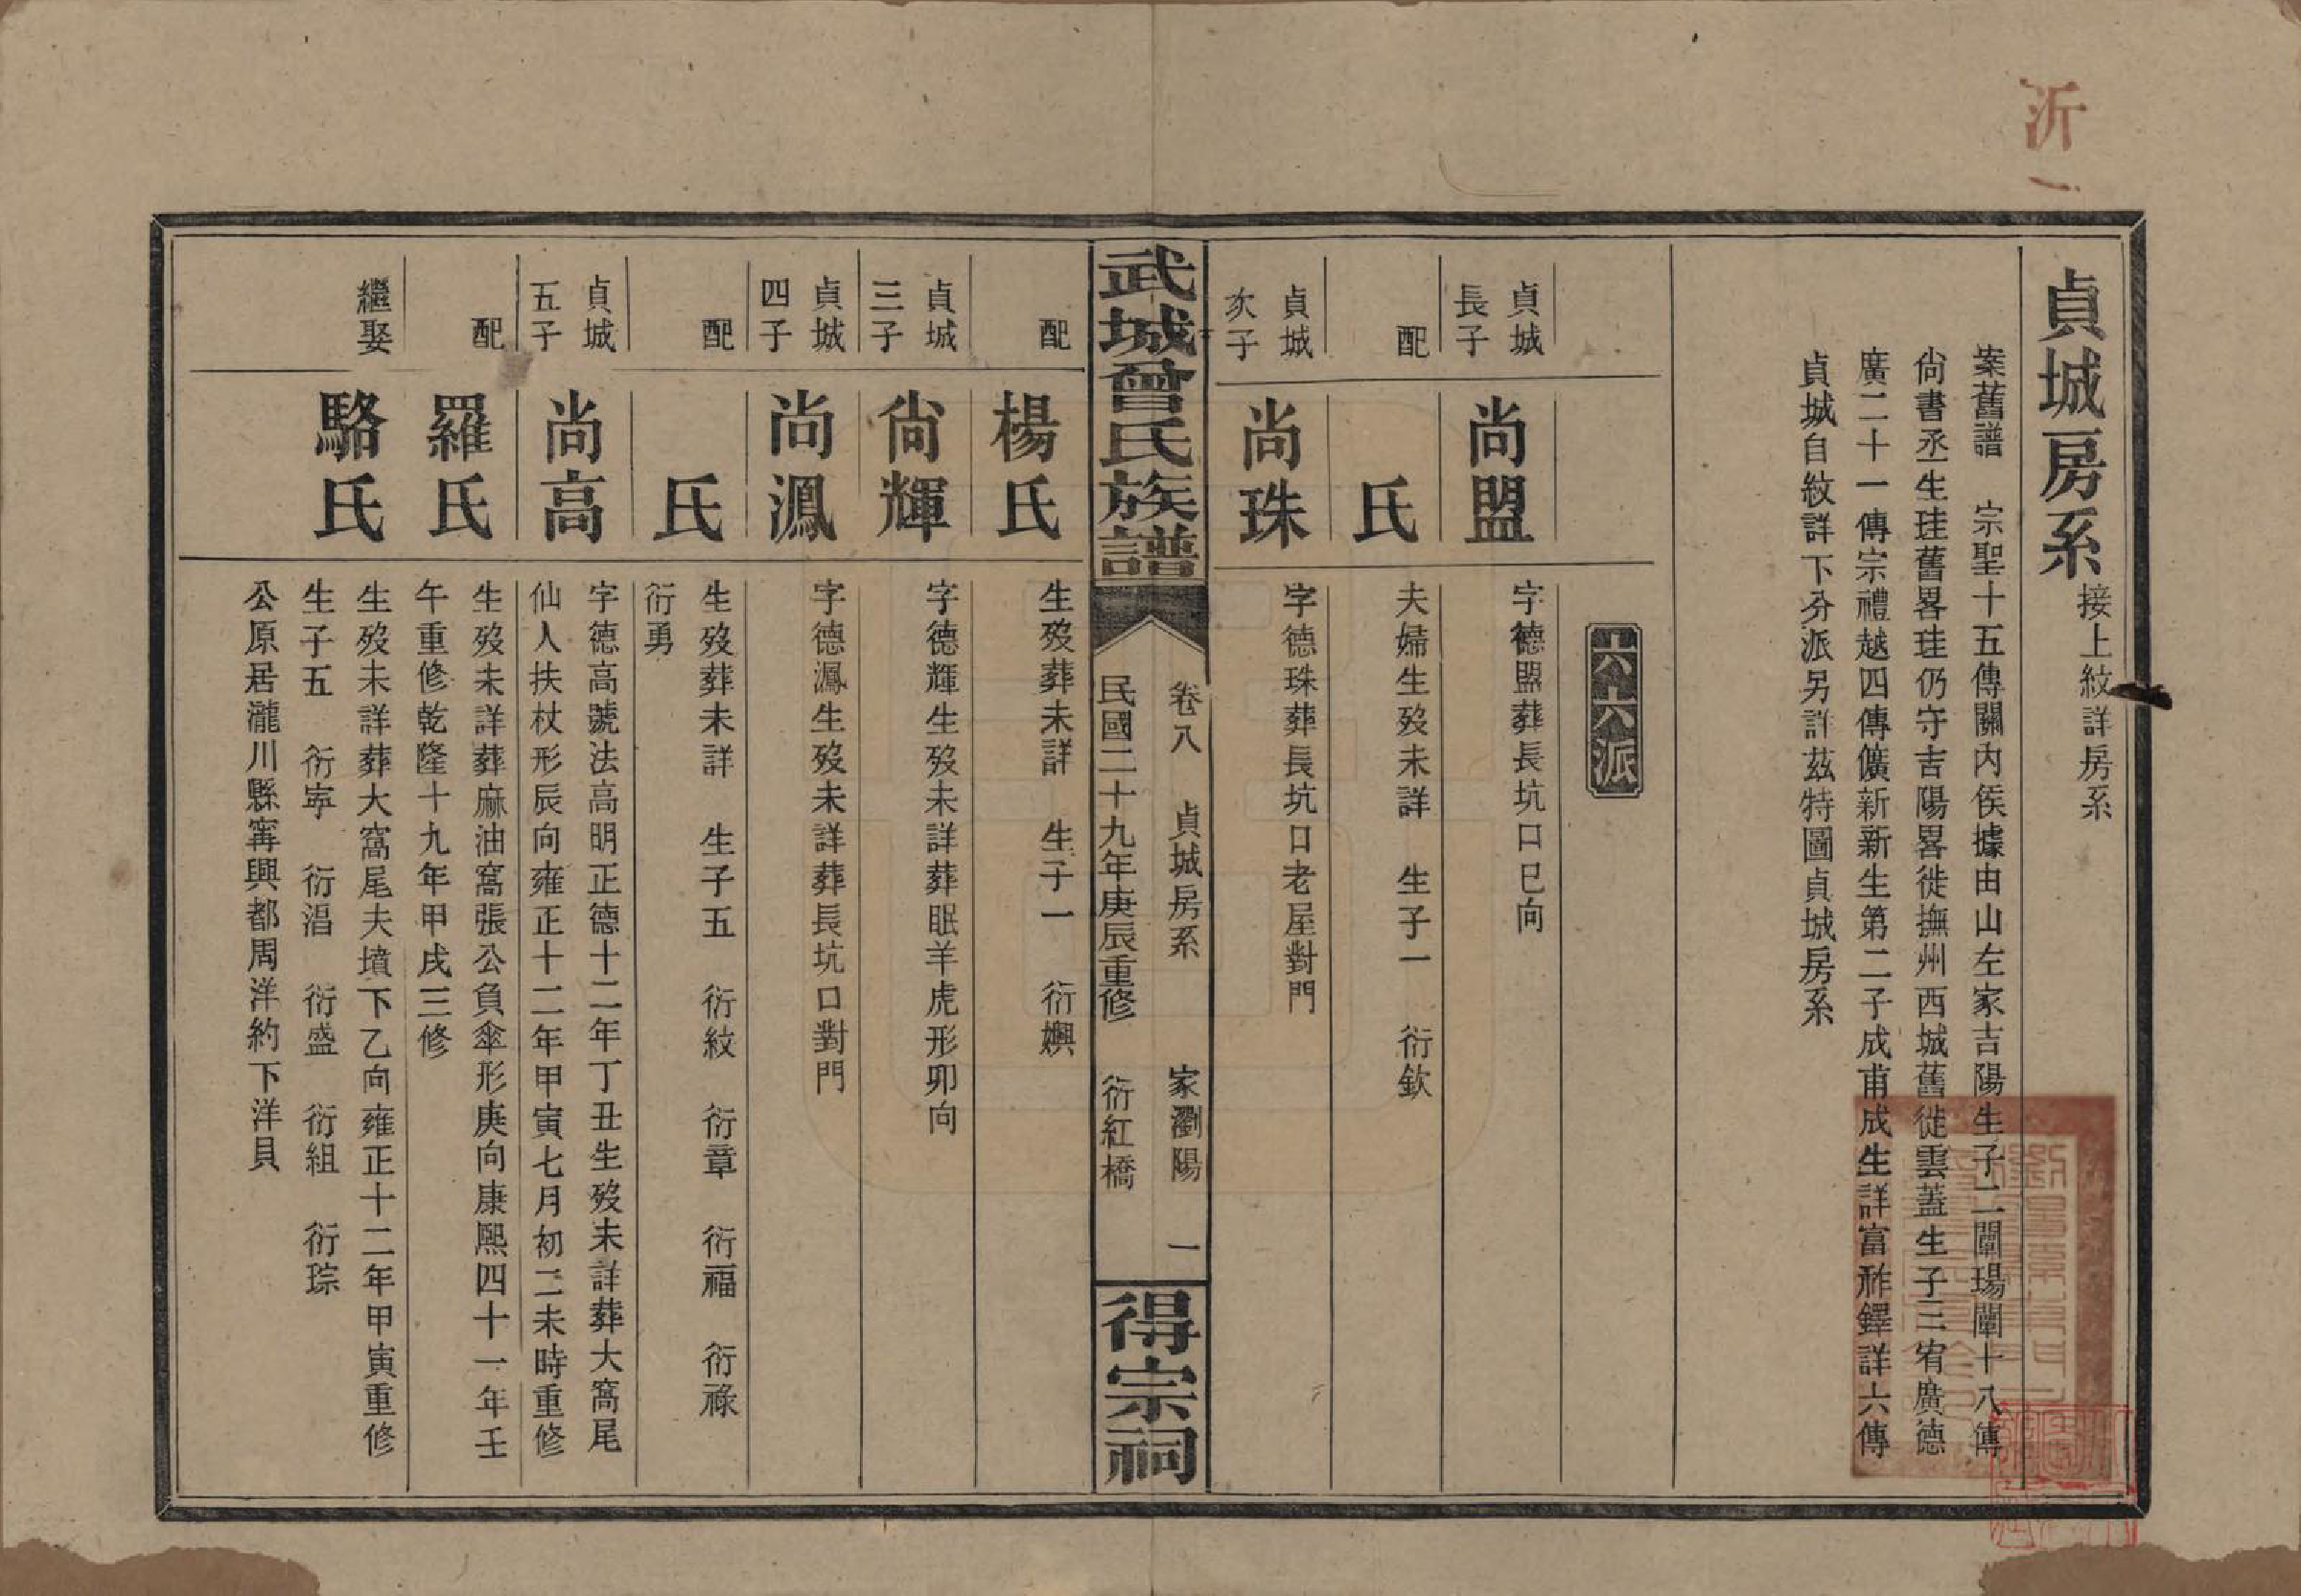 沂一
貞城房系 接上紋詳房系
案舊譜 宗聖十五傳關內侯據由山左家吉陽生子二闡瑒闡十八傳
尙書丞生珪舊畧珪仍守吉陽畧徙撫州西城舊徙雲蓋生子三宥廣德
廣二十一傳宗禮越四傳儣新新生第二子成甫成生詳富祚鐸詳六傳
貞城自紋詳下分派另詳茲特圖貞城房系
六六派
貞城長子 尚盟 字德盟葬長坑口巳向
配 氏 夫婦生歿未詳 生子一 衍欽
貞城次子 尚珠 字德珠葬長坑口老屋對門
武城曾氏族譜 卷八 貞城房系 家瀏陽 一
民國二十九年庚辰重修 衍紅橋
得宗祠
配 楊氏 生歿葬未詳 生子一 衍嬩
貞城三子 尙輝 字德輝生歿未詳葬眠羊虎形卯向
貞城四子 尚鳳 字德鳳生歿未詳葬長坑口對門
配 氏 生歿葬未詳 生子五 衍紋 衍章 衍福 衍祿
衍勇
貞城五子 尚高 字德高號法高明正德十二年丁丑生歿未詳葬大窩尾
仙人扶杖形辰向雍正十二年甲寅七月初二未時重修
配 羅氏 生歿未詳葬麻油窩張公負傘形庚向康熙四十一年壬
午重修乾隆十九年甲戌三修
繼娶 駱氏 生歿未詳葬大窩尾夫墳下乙向雍正十二年甲寅重修
生子五 衍寕 衍淐 衍盛 衍組 衍琮
公原居瀧川縣寗興都周洋約下洋貝